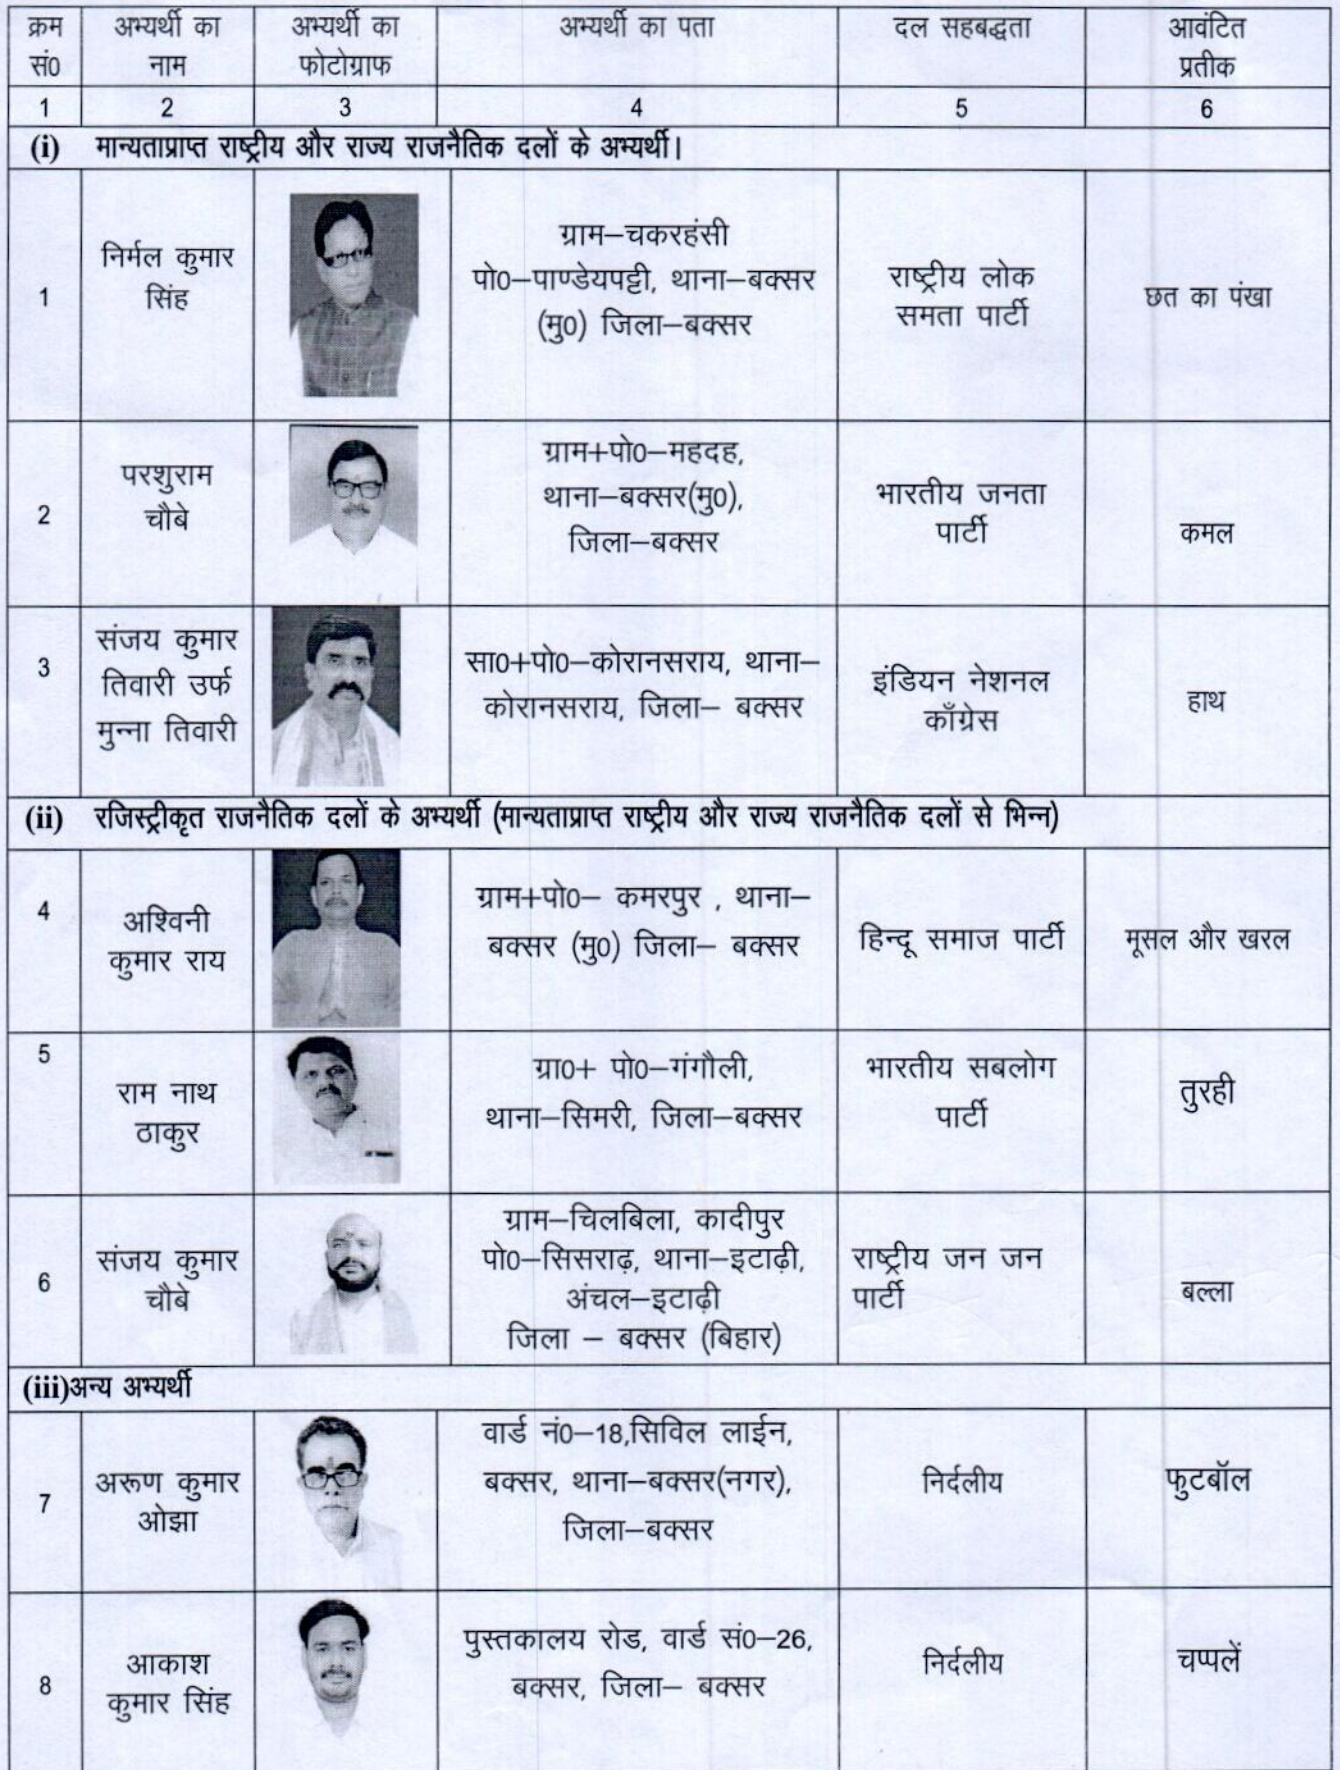 क्रम सं0 अभ्यर्थी का नाम अभ्यर्थी का फोटोग्राफ अभ्यर्थी का पता दल सहबद्धता आवंटित प्रतीक
1 2 3 4 5 6
(i) मान्यताप्राप्त राष्ट्रीय और राज्य राजनैतिक दलों के अभ्यर्थी।
1
निर्मल कुमार
सिंह
ग्राम–चकरहंसी
पो0–पाण्डेयपट्टी, थाना–बक्सर
(मु0) जिला–बक्सर
राष्ट्रीय लोक
समता पार्टी
छत का पंखा
2
परशुराम
चौबे
ग्राम+पो0–महदह,
थाना–बक्सर(मु0),
जिला–बक्सर
भारतीय जनता
पार्टी
कमल
3
संजय कुमार
तिवारी उर्फ
मुन्ना तिवारी
सा0+पो0–कोरानसराय, थाना–
कोरानसराय, जिला– बक्सर
इंडियन नेशनल
काँग्रेस
हाथ
(ii) रजिस्ट्रीकृत राजनैतिक दलों के अभ्यर्थी (मान्यताप्राप्त राष्ट्रीय और राज्य राजनैतिक दलों से भिन्न)
4
अश्विनी
कुमार राय
ग्राम+पो0– कमरपुर , थाना–
बक्सर (मु0) जिला– बक्सर
हिन्दू समाज पार्टी
मूसल और खरल
5
राम नाथ
ठाकुर
ग्रा0+ पो0–गंगौली,
थाना–सिमरी, जिला–बक्सर
भारतीय सबलोग
पार्टी
तुरही
6
संजय कुमार
चौबे
ग्राम–चिलबिला, कादीपुर
पो0–सिसराढ़, थाना–इटाढ़ी,
अंचल–इटाढ़ी
जिला – बक्सर (बिहार)
राष्ट्रीय जन जन
पार्टी
बल्ला
(iii)अन्य अभ्यर्थी
7
अरूण कुमार
ओझा
वार्ड नं0–18,सिविल लाईन,
बक्सर, थाना–बक्सर(नगर),
जिला–बक्सर
निर्दलीय
फुटबॉल
8
आकाश
कुमार सिंह
पुस्तकालय रोड, वार्ड सं0–26,
बक्सर, जिला– बक्सर
निर्दलीय
चप्पलें